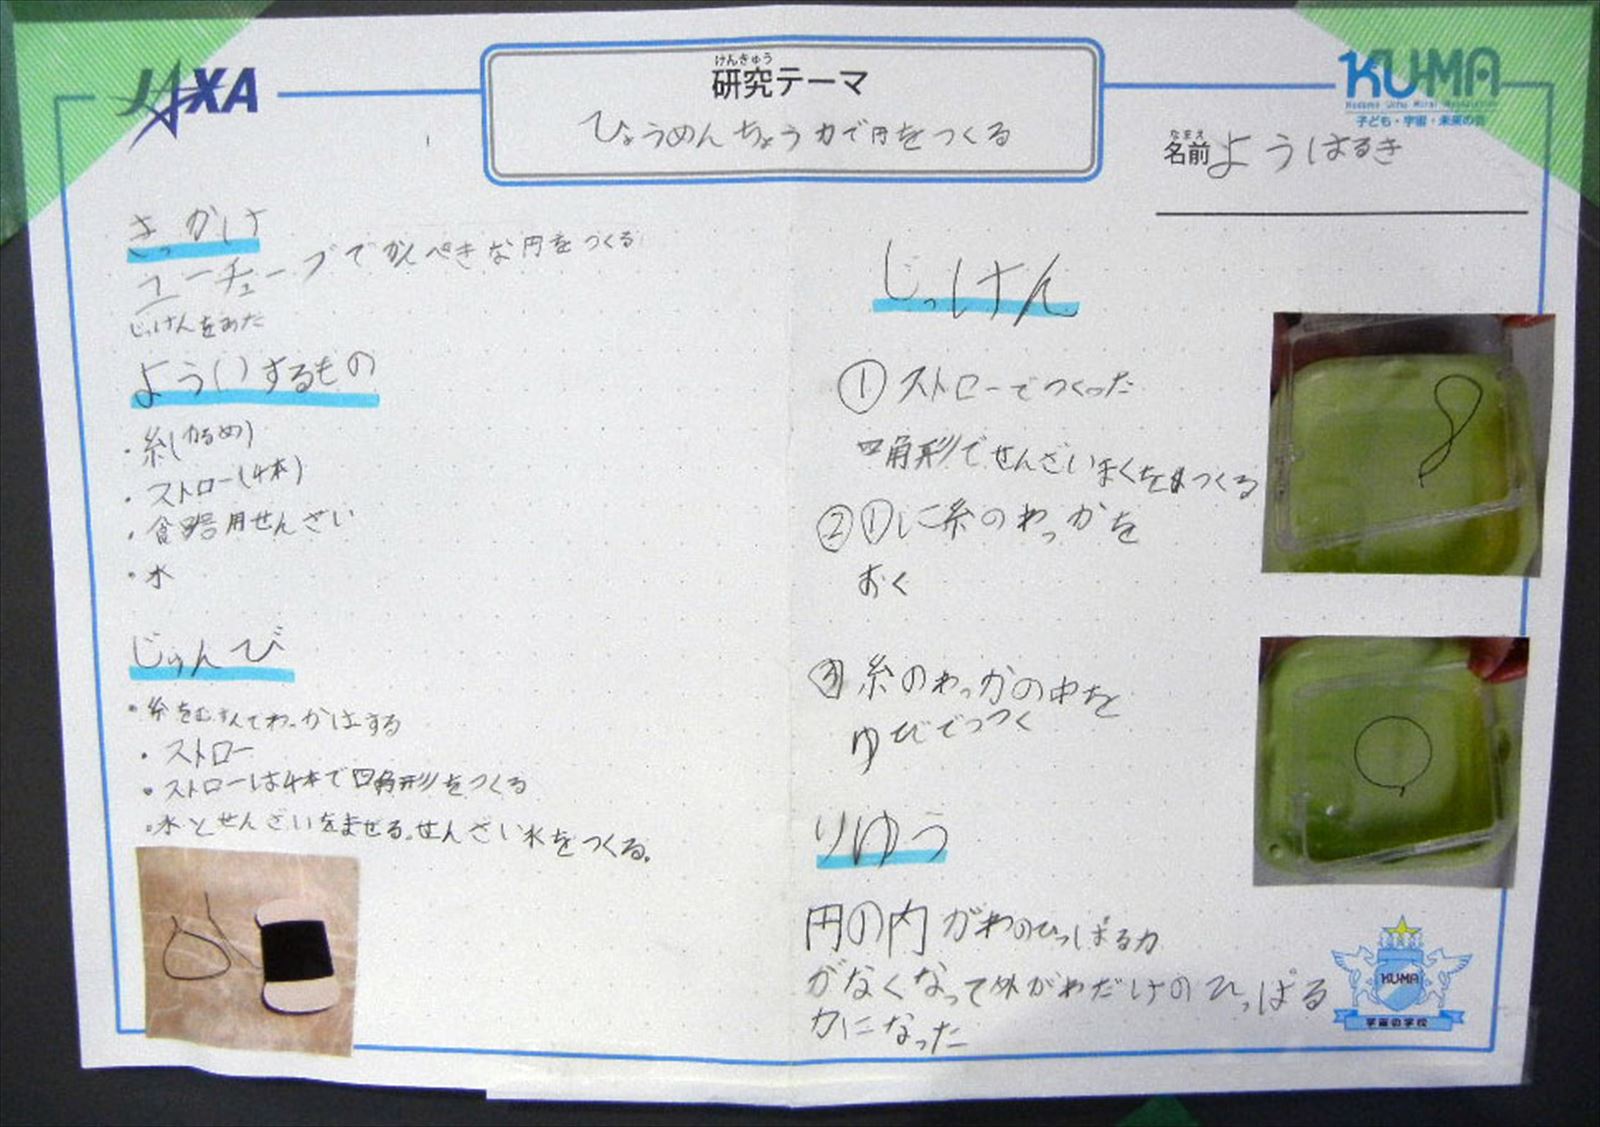 JAXA
けんきゅう
研究テーマ
ひょうめんちょう力で円をつくる
KU-MA
Kodomo Uchu Mirai Association
子ども・宇宙・未来の会
なまえ
名前 ようはるき
きっかけ
ユーチューブでかんぺきな円をつくる
じっけんをみた
よういするもの
・糸(かるめ)
・ストロー(4本)
・食器用せんざい
・水
じゅんび
・糸をむすんでわっかはする
・ストロー
・ストローは4本で四角形をつくる
・水とせんざいをまぜる。せんざい水をつくる。
じっけん
① ストローでつくった
四角形でせんざいまくをつくる
② ①に糸のわっかを
おく
③ 糸のわっかの中を
ゆびでつつく
りゆう
円の内がわのひっぱる力
がなくなって外がわだけのひっぱる
力になった
KU-MA
宇宙の学校